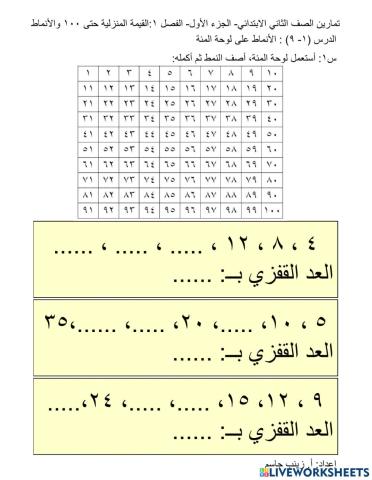 تمارين الصف الثاني الابتدائي- الجزء الأول- الفصل ١:القيمة المنزلية حتى ١٠٠ والأنماط
الدرس (١- ٩) : الأنماط على لوحة المئة
س١: أستعمل لوحة المئة، أصف النمط ثم أكمله:
١ ٢ ٣ ٤ ٥ ٦ ٧ ٨ ٩ ١٠
١١ ١٢ ١٣ ١٤ ١٥ ١٦ ١٧ ١٨ ١٩ ٢٠
٢١ ٢٢ ٢٣ ٢٤ ٢٥ ٢٦ ٢٧ ٢٨ ٢٩ ٣٠
٣١ ٣٢ ٣٣ ٣٤ ٣٥ ٣٦ ٣٧ ٣٨ ٣٩ ٤٠
٤١ ٤٢ ٤٣ ٤٤ ٤٥ ٤٦ ٤٧ ٤٨ ٤٩ ٥٠
٥١ ٥٢ ٥٣ ٥٤ ٥٥ ٥٦ ٥٧ ٥٨ ٥٩ ٦٠
٦١ ٦٢ ٦٣ ٦٤ ٦٥ ٦٦ ٦٧ ٦٨ ٦٩ ٧٠
٧١ ٧٢ ٧٣ ٧٤ ٧٥ ٧٦ ٧٧ ٧٨ ٧٩ ٨٠
٨١ ٨٢ ٨٣ ٨٤ ٨٥ ٨٦ ٨٧ ٨٨ ٨٩ ٩٠
٩١ ٩٢ ٩٣ ٩٤ ٩٥ ٩٦ ٩٧ ٩٨ ٩٩ ١٠٠
٤ ، ٨ ، ١٢ ، ..... ، ..... ، ......
العد القفزي بــ: ......
٥ ، ١٠، .....، ٢٠، .....، ......،٣٥
العد القفزي بــ: ......
٩ ، ١٢، ١٥، .....، .....، ٢٤،.....
العد القفزي بــ: ......
إعداد: أ. زينب جاسم
LIVEWORKSHEETS